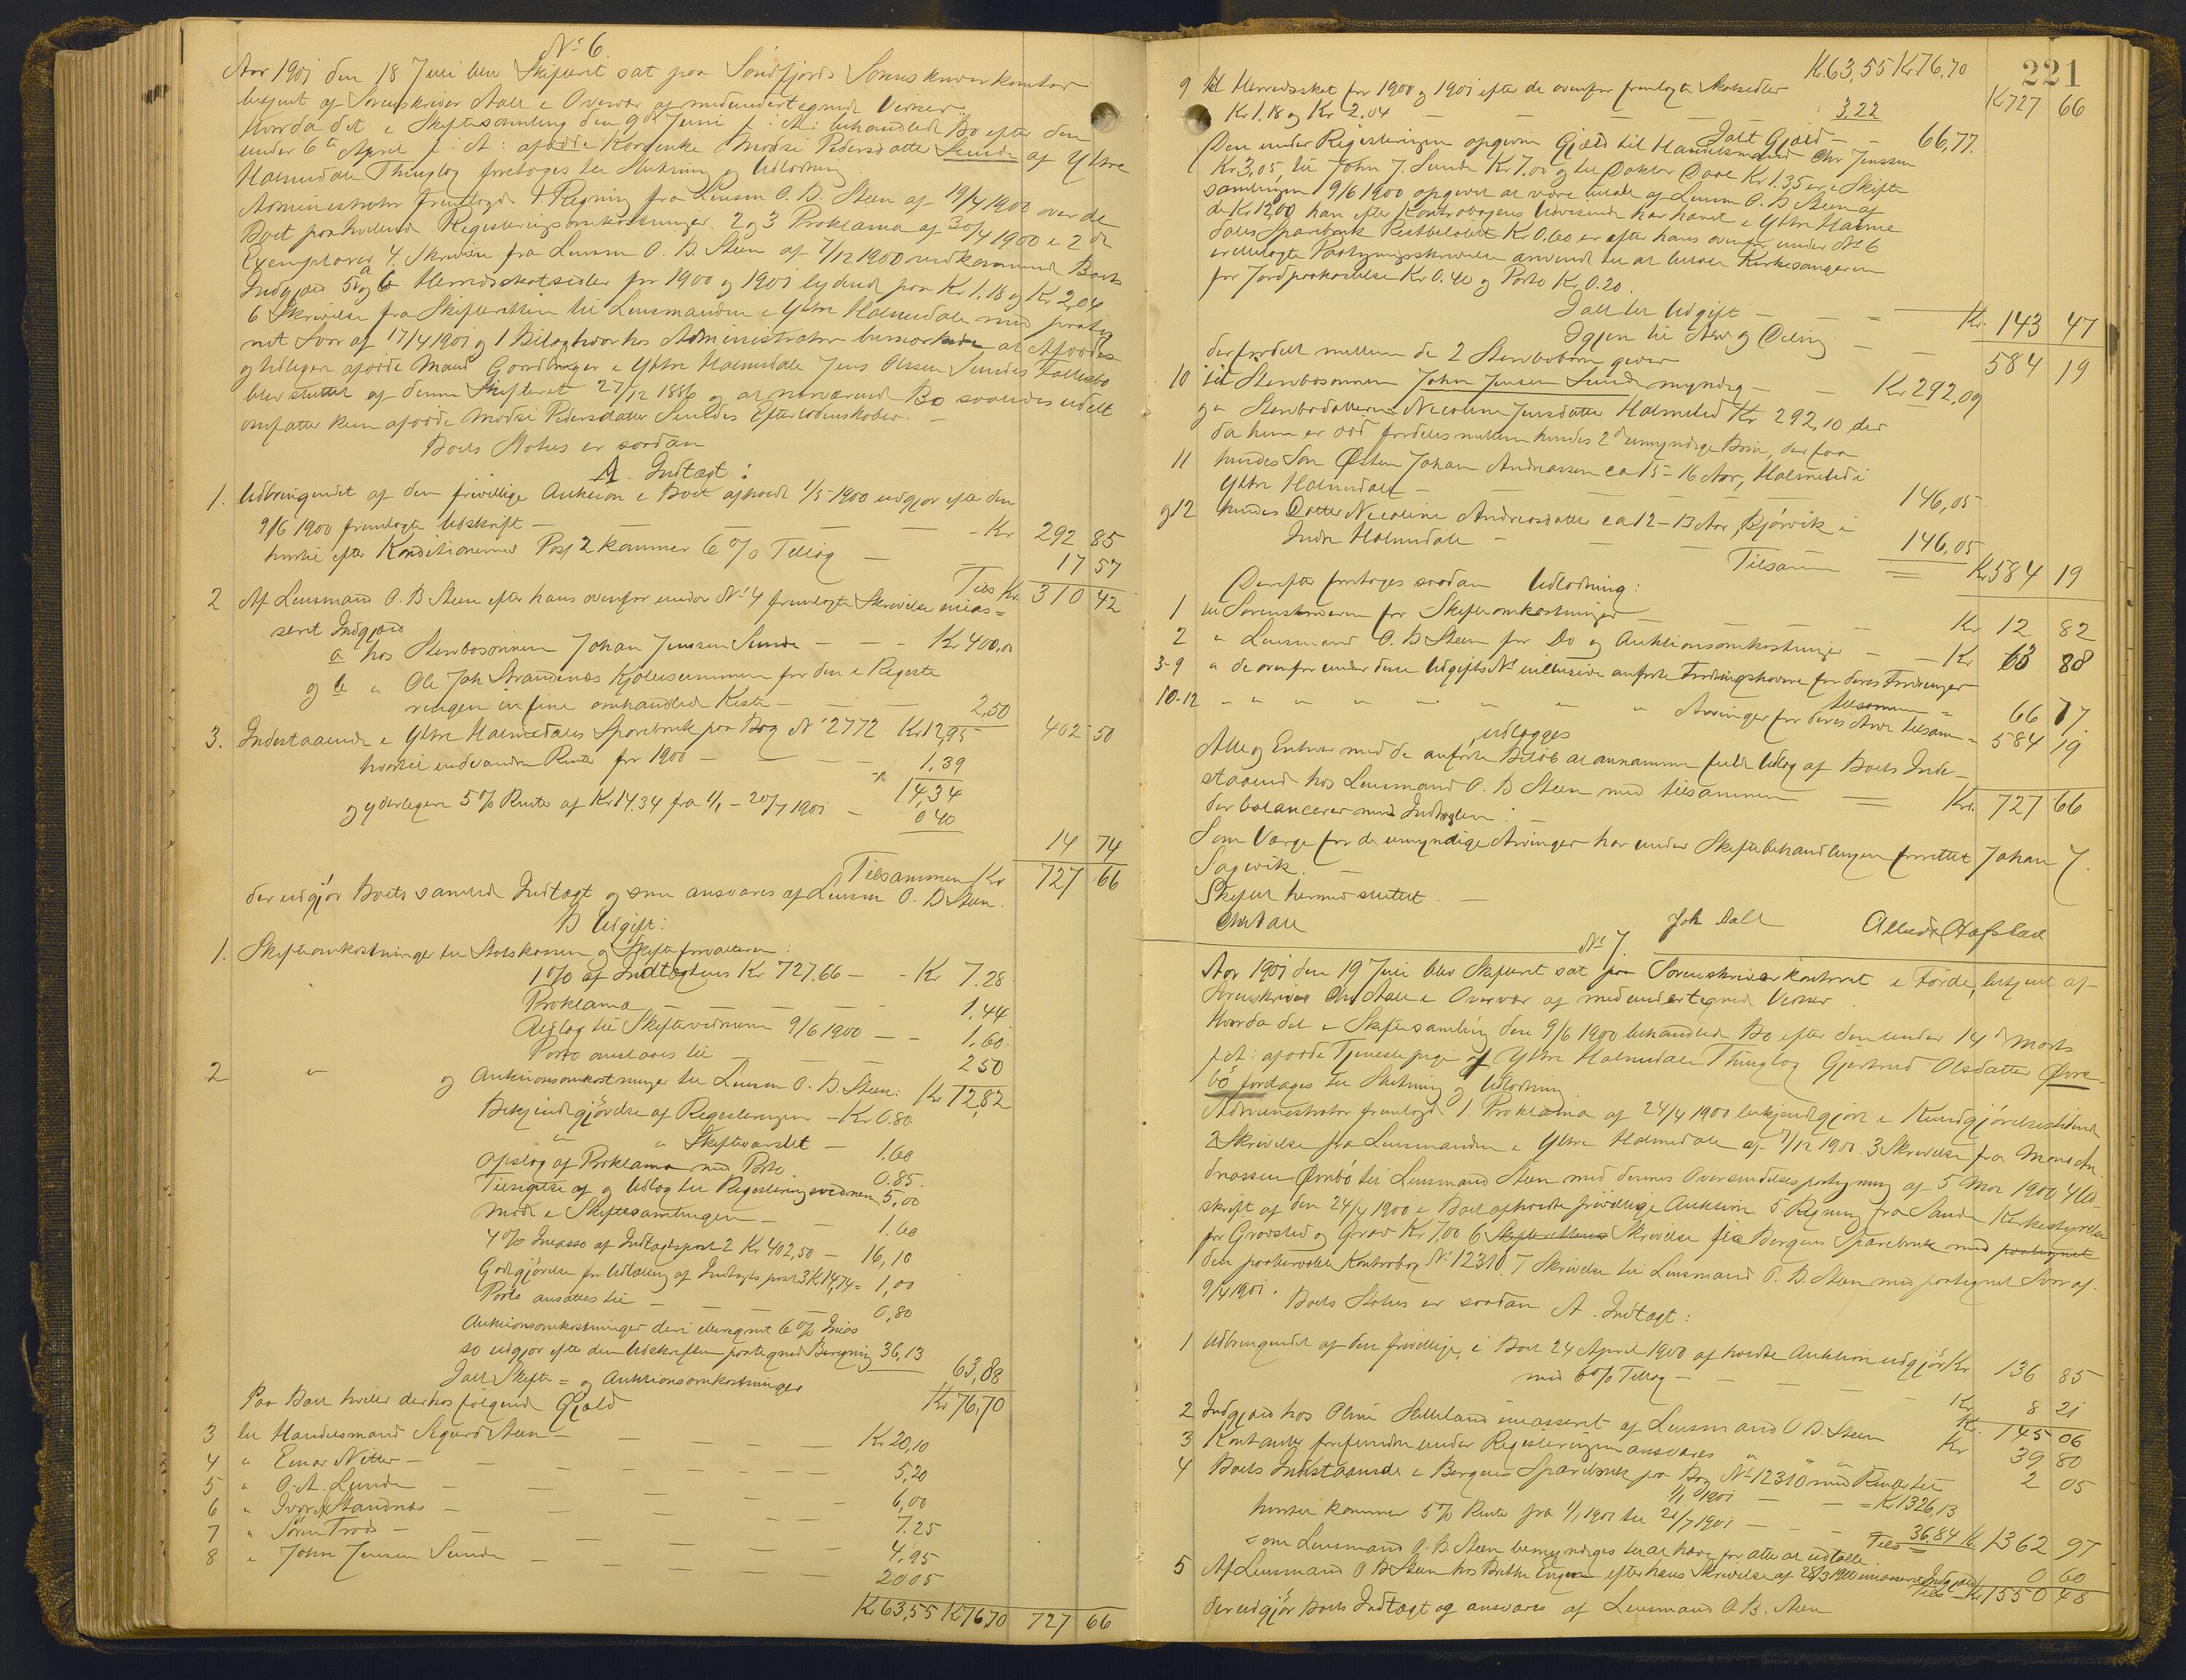 No 6.
Aar 1901 den 18 Juli blev Skifteret sat paa Søndfjords Sorenskriverkontor
betjent af Sorenskriver Aall i Overvær af medundertegnede Vidner.
Hvorda det i Skiftesamling den 9de Juni f: A: behandlede Bo efter den
under 6te April f: A: afdøde Kaarenke Modsi Pedersdatter Sunde af Ytre
Holmedals Thinglag foretoges til Slutning og Udlodning.
Administrator fremlagde 1. Regning fra Lensm O. B. Steen af 19/4 1900 over de
Boet paahvilende Registeringsomkostninger. 2 og 3 Proklama af 30/4 1900 i 2de
Exemplarer 4. Skrivelse fra Lensm O. B. Steen af 7/12 1900 vedkommende Boets
Indgjæld 5 a og b Herredsskatsedler for 1900 og 1901 lydende paa Kr 1.18 og Kr 2,04
6 Skrivelse fra Skifteretten til Lensmanden i Ytre Holmedal med paateg
net Svar af 17/4 1901 og 1 Bilag hvorhos Administrator bemærkede, at Afdødes
og tidligere afdøde Mand Gaardbruger i Ytre Holmedal Jens Olssen Sundes Fællesbo
blev sluttet af denne Skifteret 27/12 1886 og at nærværende Bo saaledes udelt
omfatter kun afdøde Modsi Pedersdatter Sundes Efterladenskaber. –
Boets Status er saadan
A. Indtægt:
1. Udbringendet af den frivillige Auktion i Boet afholdt 1/5 1900 udgjør efter den
9/6 1900 fremlagte Udskrift – Kr 292 85
hertil efter Konditionernes Post 2 kommer 6 % Tillæg – 17 57
Tils Kr. 310 42
2 Af Lensmand O. B Steen efter hans ovenfor under No 4 fremlagte Skrivelse inkas=
seret Indgjæld
a hos Stervbosønnen Johan Jenssen Sunde – – Kr 400,00
og b " Ole Joh Strandenæs Kjøbesummen for den i Registe
ringen in fine omhandlede Kiste – 2,50
402 50
3. Indestaaende i Ytre Holmedals Sparebank paa Bog No 2772 Kr 12,95
hvortil indvundne Renter for 1900 – 1,39
14,34
og yderligere 5 % Rente af Kr 14.34 fra 1/1 – 20/7 1901 – 0 40
14 74
Tilsammen Kr 727 66
der udgjør Boets samlede Indtægt og som ansvares af Lensm O. B Steen.
B Udgift:
1. Skifteomkostninger til Statskassen og Skifteforvalteren:
1 % af Indtægtens Kr 727.66 – - Kr 7.28
Proklama – 1,44
Udlæg til Skiftevidnerne 9/6 1900 – - 1,60.
Porto ansættes til – 2 50
Kr 12,82
2 " og Auktionsomkostninger til Lensm O. B. Steen:
Bekjendtgjørelse af Registeringen – Kr 0.80.
" " Skiftevarslet – 1.60
Opslag af Proklama med Porto 0.85.
Tilsigelse af og Udlæg til Registeringsvidnerne 5,00
Møde i Skiftesamlingen – 1.60
4 % Incasso af Indtægtspost 2 Kr 402,50 – 16,10
Godtgjørelse for Udtælling af Indtægts post 3 Kr 14,74 = 1,00
Porto ansættes til – 0,80
Auktionsomkostninger deri iberegnet 6 % Inkas
so udgjør efter den Udskriften paategnede Beregning 36,13
63,88
Ialt Skifte = og Auktionsomkostninger Kr 76,70
Paa Boet hviler derhos følgende Gjæld
3 til Handelsmand Sigurd Steen – Kr 20,10
4 " Einar Nitter – 5,20
5 " O. A. Lunde 6,00
6 " Ivar Standnæs – 7.25
7 " Søren Trads – 4,95
8 " John Jensen Sunde – 20 05
Kr 63,55 Kr 76,70 727 66
221
Kr 63,55 Kr 76,70
Kr 727 66
9 til Herredsskat for 1900 og 1901 efter de ovenfor fremlagte Skatsedler
Kr 1.18 og Kr 2.04 – 3.22
Ialt Gjæld – 66,77.
Den under Registeringen opgivne Gjæld til Handelsmand Chr Jenssen
Kr 3,05, til John J. Sunde Kr 7.00 og til Doktor Daae Kr 1.35 er i Skifte
samlingen 9/6 1900 opgivet at være betalt af Lensm O. B Steen af
de Kr 12,00 han efter Kontrabogens Udvisende har hævet i Ytre Holme
dals Sparebank Restbeløbet Kr 0.60 er efter hans ovenfor under No 6
ermeldte Paategningsskrivelse anvendt til at betale Kirkesangeren
for Jordpaakastelse Kr 0.40 og Porto Kr 0.20.
Ialt til Udgift – Kr. 143 47
Igjen til Arv og Deling – 584 19
der fordelt mellem de 2 Stervbobørn giver
10 til Stervbosønnen Johan Jensen Sunde myndig – Kr 292,09
og " Stervbodatteren Nicoline Jensdatter Holmelid Kr 292,10 der
da hun er død fordeles mellem hendes 2de umyndige Børn, der faar
11 hendes Søn Østen Johan Andreassen ca 15 – 16 Aar, Holmelid i
Ytre Holmedal – 146,05
og 12 hendes Datter Nicoline Andreasdatter ca 12 – 13 Aar, Bjørvik i
Indre Holmedal – 146,05
Tilsam Kr 584 19
Derefter foretoges saadan Udlodning:
1 til Sorenskriveren for Skifteomkostninger – Kr 12 82
2 " Lensmand O. B Steen for Do og Auktionsomkostninger – Kr 63 88
3-9 " de ovenfor under disse Udgifts No inklusive anførte Fordringshavere for deres Fordringer
tilsammen = 66 77
10-12 " " " " " " " " Arvinger for deres Arv tilsam = 584 19
udlægges
Alle og Enhver med de anførte Beløb at annamme fuldt Udlæg af Boets Inde-
staaende hos Lensmand O. B Steen med tilsammen = Kr. 727 66
der balancerer med Indtægten. –
Som Værge for de umyndige Arvinger har under Skiftebehandlingen forrettet Johan J.
Sagvik. –
Skiftet hermed sluttet. –
Chr Aall
Joh Dall
Alb. Hafstad
No 7.
Aar 1901 den 19 Juli blev Skifteret sat paa Sorenskriverkontoret i Førde, betjent af
Sorenskriver Chr Aall i Overvær af medundertegnede Vidner.
Hvorda det i Skiftesamling den 9/6 1900 behandlede Bo efter den under 14de Marts
f. A: afdøde Tjenestepige af Ytre Holmedals Thinglag Gjertrud Olsdatter Øvre-
bø foretages til Slutning og Udlodning
Administrator fremlagde 1. Proklama af 24/4 1900 bekjendtgjort i Kundgjørelsestidende
2 Skrivelse fra Lensmanden i Ytre Holmedal af 7/12 1900. 3 Skrivelse fra Mons An
dreassen Ørnbø til Lensmand Steen med dennes Oversendelsespaategning af 5 Mar 1900, 4 Ud-
skrift af den 24/4 1900 i Boet afholdte frivillige Auktion 5 Regning fra Sande Kirkestyrelse
for Gravsted og Grav Kr 7,00 6 Skifterettens Skrivelse fra Bergens Sparebank med paategnet
den paaberaabte Kontrabog No 12310. 7 Skrivelse til Lensmand O. B Steen med paategnet Svar af
9/4 1901.
Boets Status er saadan A. Indtægt:
1 Udbringendet af den frivillige, i Boet 24 April 1900 afholdte Auktion udgjør Kr 136 85
med 6 % Tillæg – Kr 8 21
Kr. 145 06
2 Indgjæld hos Oline Selleland inkasseret af Lensmand O B. Steen Kr 39 80
3 Kontanter forefundne under Registeringen ansvares " " " 2 05
4 Boets Indestaaende i Bergens Sparebank paa Bog No 12310 med Renter til
1/1 1901 – = Kr 1326,13
hvortil kommer 5 % Rente fra 1/1 1901 til 21/7 1901 – 36.84
Tils = Kr 1362 97
som Lensmand O. B. Steen bemyndiges til at hæve for atter at udtælle.
5 Af Lensmand O B Steen hos Berthe Engen efter hans Skrivelse af 28/3 1900 inkasseret Indgjæld 0 60
Tils Kr 1550 48
der udgjør Boets Indtægt og ansvares af Lensmand O. B. Steen